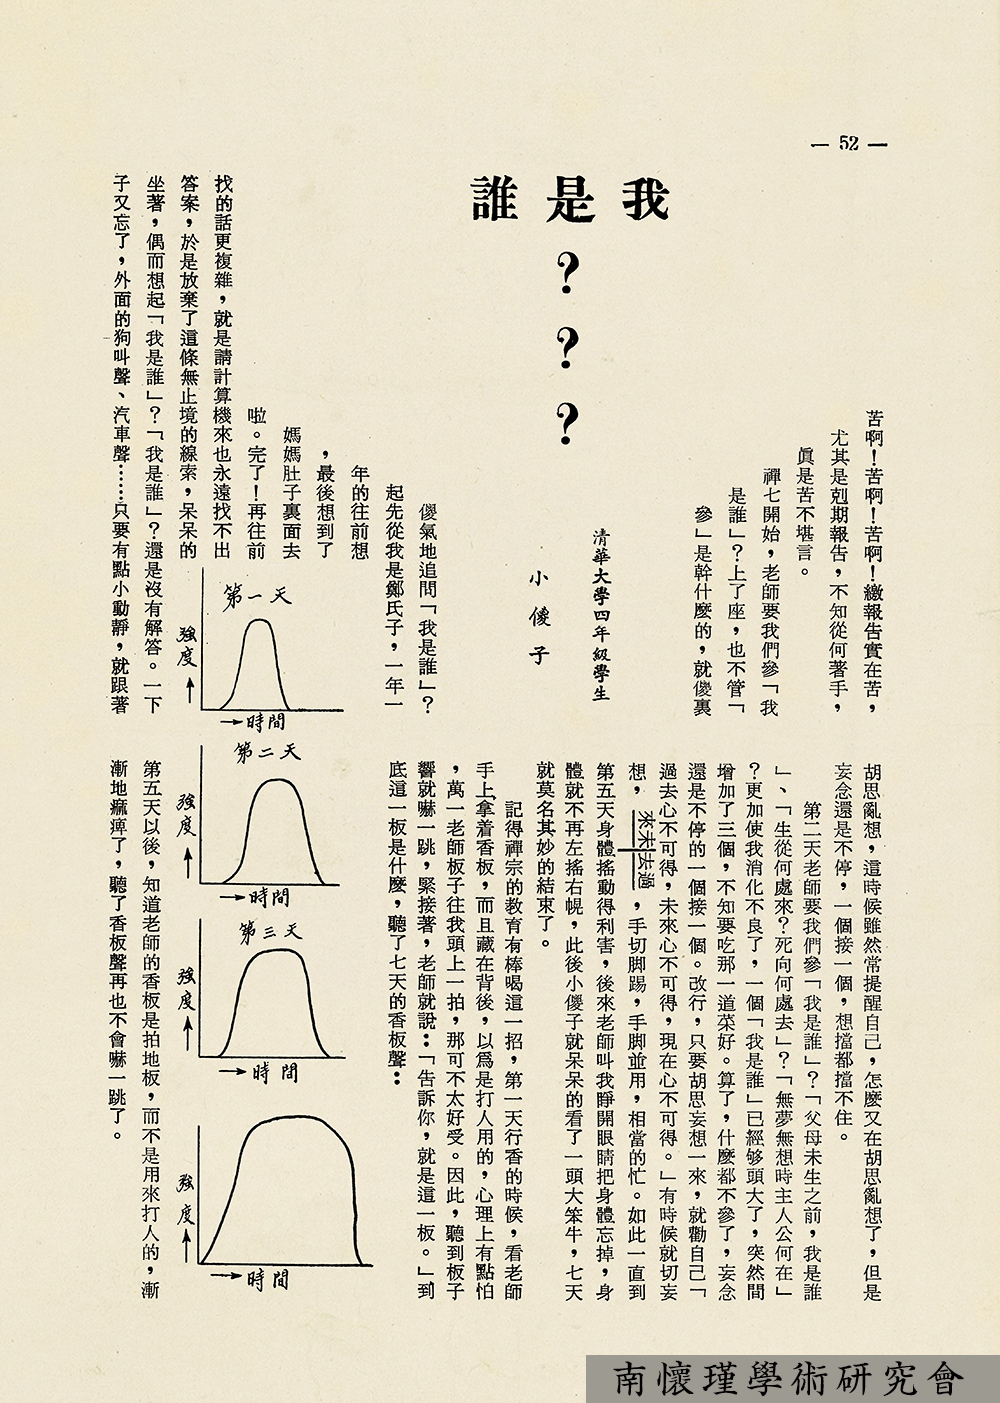 — 52 —
我是誰
?
?
?
清華大學四年級學生
小傻子
苦啊!苦啊!苦啊!繳報告實在苦,
尤其是剋期報告,不知從何著手,
眞是苦不堪言。
禪七開始,老師要我們參「我
是誰」?上了座,也不管「
參」是幹什麼的,就傻裏
傻氣地追問「我是誰」?
起先從我是鄭氏子,一年一
年的往前想
,最後想到了
媽媽肚子裏面去
啦。完了!再往前
找的話更複雜,就是請計算機來也永遠找不出
答案,於是放棄了這條無止境的線索,呆呆的
坐著,偶而想起「我是誰」?「我是誰」?還是沒有解答。一下
子又忘了,外面的狗叫聲、汽車聲……只要有點小動靜,就跟著
胡思亂想,這時候雖然常提醒自己,怎麼又在胡思亂想了,但是
妄念還是不停,一個接一個,想擋都擋不住。
第二天老師要我們參「我是誰」?「父母未生之前,我是誰
」、「生從何處來?死向何處去」?「無夢無想時主人公何在」
?更加使我消化不良了,一個「我是誰」已經够頭大了,突然間
增加了三個,不知要吃那一道菜好。算了,什麼都不參了,妄念
還是不停的一個接一個。改行,只要胡思妄想一來,就勸自己「
過去心不可得,未來心不可得,現在心不可得。」有時候就切妄
想,來未去過,手切脚踢,手脚並用,相當的忙。如此一直到
第五天身體搖動得利害,後來老師叫我睜開眼睛把身體忘掉,身
體就不再左搖右幌,此後小傻子就呆呆的看了一頭大笨牛,七天
就莫名其妙的結束了。
記得禪宗的教育有棒喝這一招,第一天行香的時候,看老師
手上拿着香板,而且藏在背後,以爲是打人用的,心理上有點怕
,萬一老師板子往我頭上一拍,那可不太好受。因此,聽到板子
響就嚇一跳,緊接著,老師就說:「告訴你,就是這一板。」到
底這一板是什麼,聽了七天的香板聲:
第一天
強度
時間
第二天
強度
時間
第三天
強度
時間
強度
時間
第五天以後,知道老師的香板是拍地板,而不是用來打人的,漸
漸地痲痺了,聽了香板聲再也不會嚇一跳了。
南懷瑾學術研究會